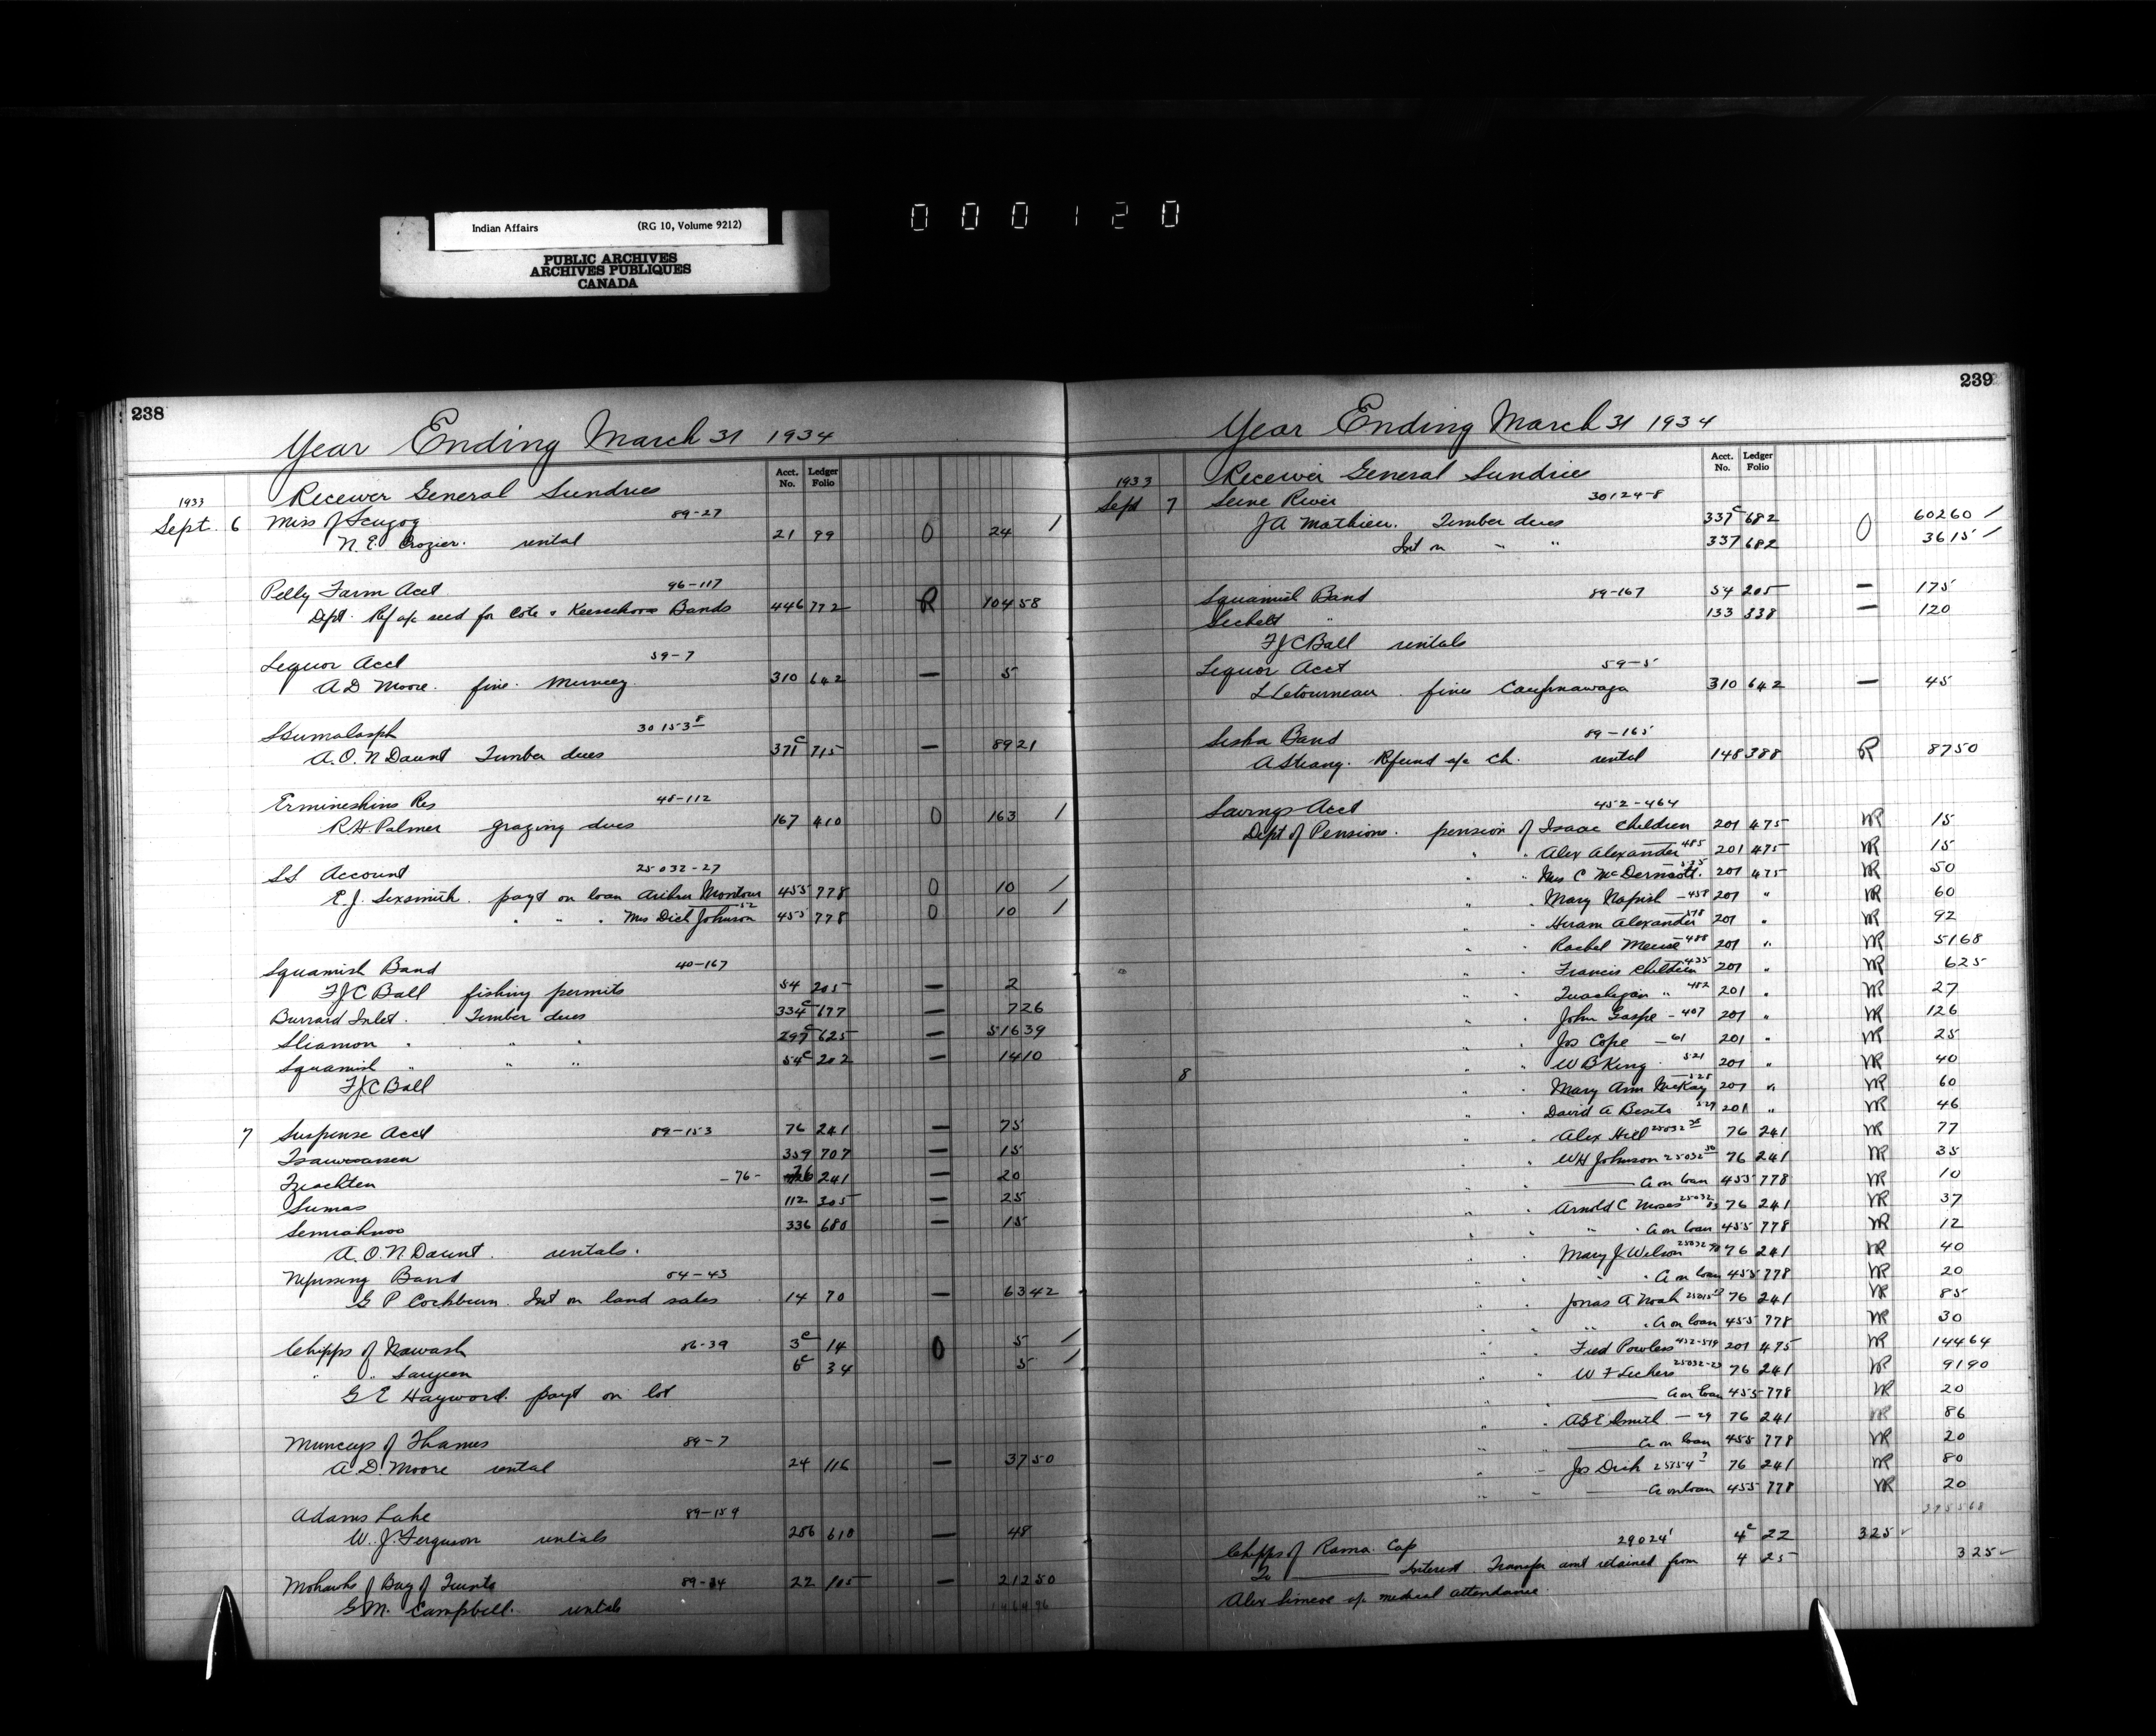 Indian Affairs (RG 10, Volume 9212)
PUBLIC ARCHIVES
ARCHIVES PUBLIQUES
CANADA
000120
238
Year Ending March 31 1934
Acct. No. Ledger Folio
1933 Receiver General Sundries
Sept. 6 Miss of Scugog 89-27
N. E. Crozier. rental 21 99 0 24 /
Pelly Farm Acct 96-117
Dept. Ref a/c seed for Cote & Keeseekoose Bands 446 772 R 104 58
Liquor Acct 59-7
A D Moore. fine. Muncey 310 642 — 5
Skumalasph 30153-8
A. O. N Daunt Timber dues 371c 715 — 89 21
Ermineskins Res 45-112
R. H. Palmer grazing dues 167 410 0 163 /
SS Account 25032-27
E. J. Sexsmith. payt on loan Arthur Montour 455 778 0 10 /
" " " Mrs Dick Johnson 52 455 778 0 10 /
Squamish Band 40-167
F J C Ball fishing permits 54 205 — 2
Burrard Inlet. Timber dues 334c 677 — 7 26
Sliamon " " " 297c 625 — 516 39
Squamish " " " 54c 202 — 14 10
F J C Ball
7 Suspense Acct 89-153 76 241 — 75
Tsawwassen 359 707 — 15
Tzeachten -76- 76 241 — 20
Sumas 112 305 — 25
Semiahmoo 336 680 — 15
A. O. N. Daunt. rentals.
Nipissing Band 54-43
G P Cockburn. Int on land sales 14 70 — 63 42
Chipps of Nawash 56-39 3c 14 0 5 /
" " Saugeen 6c 34 5 /
G E Hayword. payt on lot
Munceys of Thames 89-7
A. D. Moore rental 24 116 — 37 50
Adams Lake 89-159
W. J. Ferguson rentals 286 610 — 48
Mohawks of Bay of Quinte 89-34 22 105 — 212 50
G. M. Campbell. rentals
239
Year Ending March 31 1934
Acct. No. Ledger Folio
1933 Receiver General Sundries
Sept 7 Seine River 30124-8
J A Mathieu. Timber dues 337c 682 0 602 60 /
Int on " " 337 682 36 15 /
Squamish Band 89-167 54 205 — 175
Sechelt " 133 338 — 120
F J C Ball rentals
Liquor Acct 59-5
L Letourneau. fines Caughnawaga 310 642 — 45
Siska Band 89-165
A Strang. Refund a/c Ch. rental 148 388 R 87 50
Savings Acct 452-464
Dept of Pensions. pension of Isaac Children 201 475 NR 15
" " Alex Alexander 485 201 475 NR 15
" " Mrs C McDermott. 201 475 NR 50
" " Mary Napish -458 201 " NR 60
" " Hiram Alexander 578 201 " NR 92
" " Rachel Meuse -488 201 " NR 51 68
" " Francis Children 435 201 " NR 6 25
" " " 482 201 " NR 27
" " John Gaspe -407 201 " NR 126
" " Jos Cope -61 201 " NR 25
" " W B King. 521 201 " NR 40
8 " " Mary Ann McKay 525 201 " NR 60
David A Besito 529 201 " NR 46
" " Alex Hill 25032 35 76 241 NR 77
" " W H Johnson 25032 50 76 241 NR 35
" " —— a on loan 455 778 NR 10
" " Arnold C Moses 25032 83 76 241 NR 37
" " " " a on loan 455 778 NR 12
Mary J Wilson 25032 90 76 241 NR 40
" " " " a on loan 455 778 NR 20
" " Jonas A Noah 76 241 NR 85
" " a on loan 455 778 NR 30
" " Fred Powless 452-519 201 475 NR 144 64
" " W F Lickers 25032-23 76 241 NR 91 90
" —— a on loan 455 778 NR 20
" " A G E Smith -29 76 241 NR 86
" " —— a on loan 455 778 NR 20
" " Jos Dick 25154 3 76 241 NR 80
" " —— a on loan 455 778 NR 20
Chipps of Rama. Cap 29024-1 4c 22 3 25 ✓
To —— Interest. Transfer amt retained from 4 25 3 25 ✓
Alex Simcoe a/c medical attendance